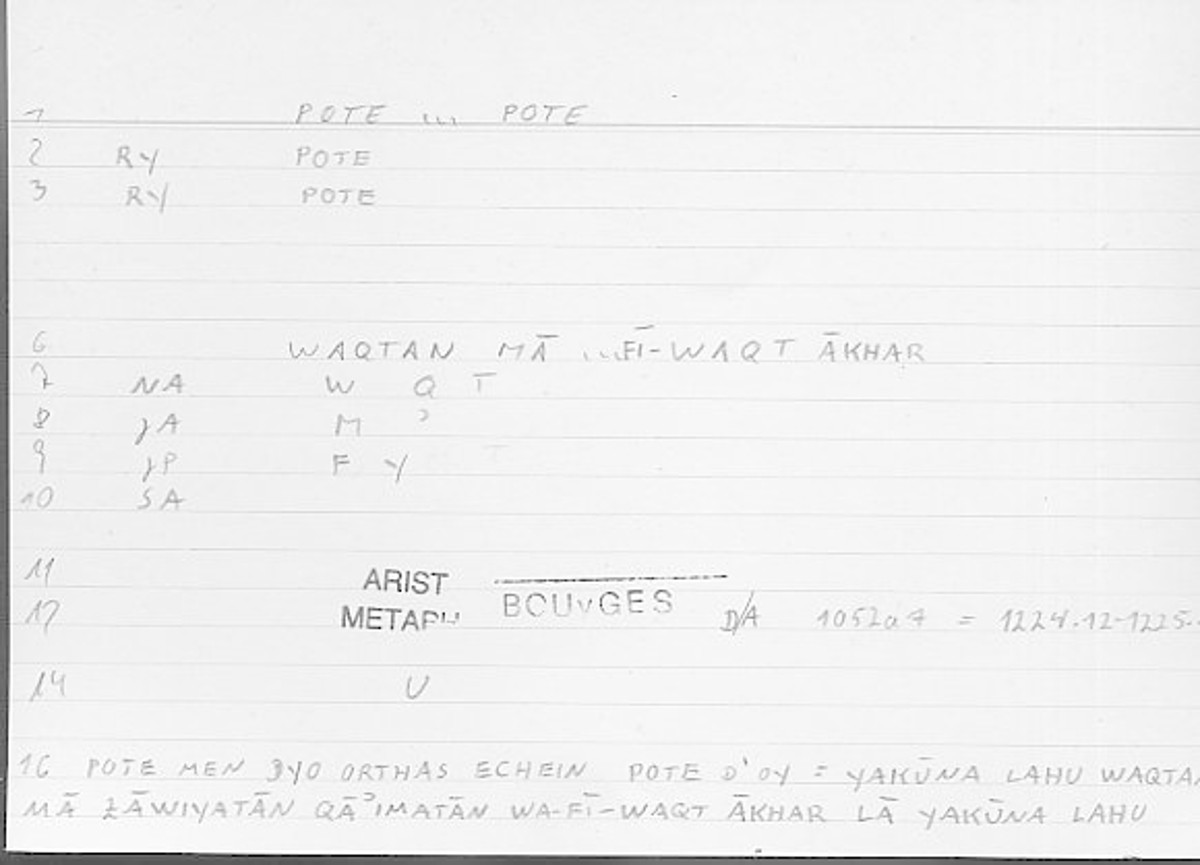 1 POTE ... POTE
2 RY POTE
3 RY POTE
6 WAQTAN MĀ ...FĪ-WAQT ĀKHAR
7 NA W Q T
8 JA M ʾ
9 JP F Y
10 SA
11 ARIST
12 METAPH BOUYGES D/A 1052a7 = 1224.12-1225.
14 U
16 POTE MEN DYO ORTHAS ECHEIN POTE D'OY = YAKŪNA LAHU WAQTAN
MĀ ZĀWIYATĀN QĀʾIMATĀN WA-FĪ-WAQT ĀKHAR LĀ YAKŪNA LAHU